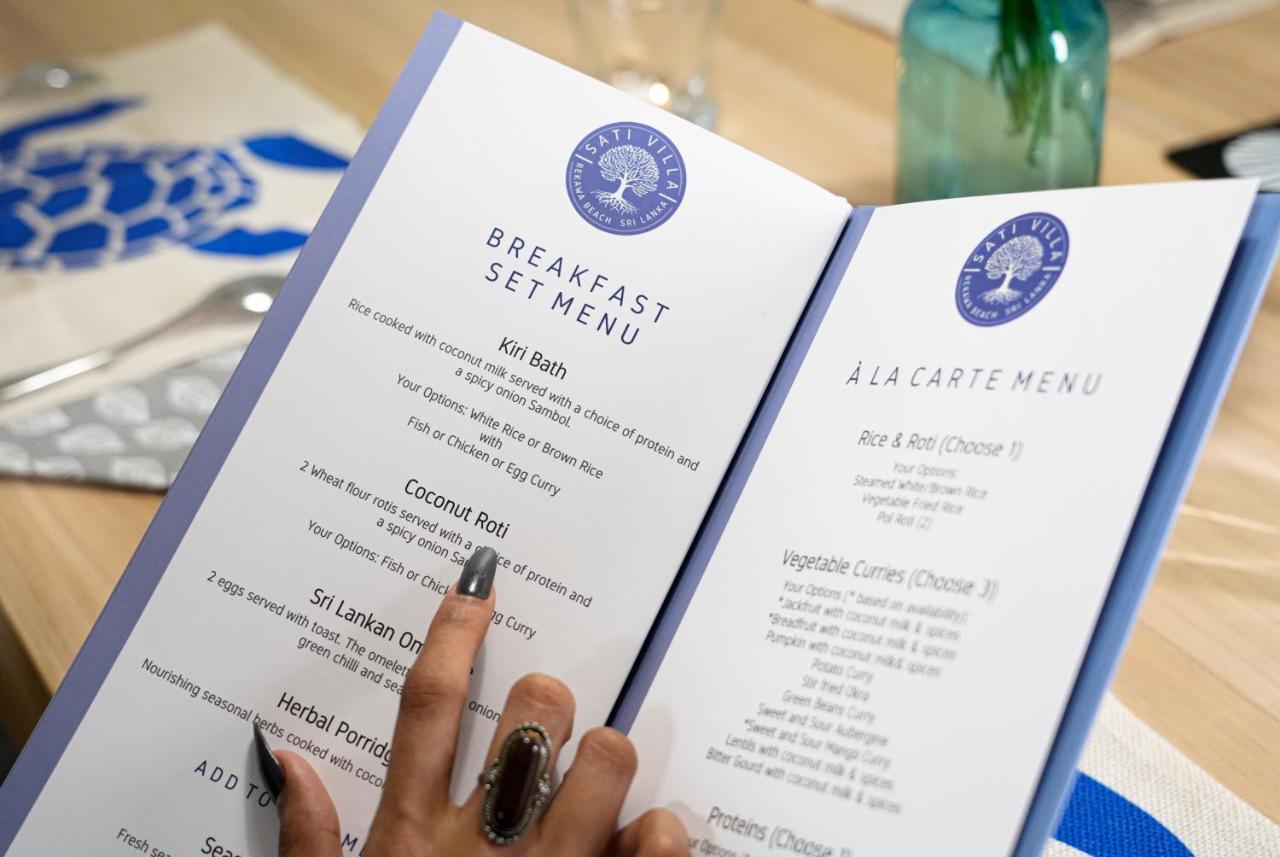 SATI VILLA
REKAWA BEACH SRI LANKA
BREAKFAST
SET MENU
Kiri Bath
Rice cooked with coconut milk served with a choice of protein and
a spicy onion Sambol.
Your Options: White Rice or Brown Rice
with
Fish or Chicken or Egg Curry
Coconut Roti
2 Wheat flour rotis served with a choice of protein and
a spicy onion Sa
Your Options: Fish or Chick Egg Curry
Sri Lankan Om
2 eggs served with toast. The omelett
green chilli and sea onion
Herbal Porridg
Nourishing seasonal herbs cooked with coco
ADD TO M
Seas
Fresh sea
SATI VILLA
REKAWA BEACH SRI LANKA
À LA CARTE MENU
Rice & Roti (Choose 1)
Your Options:
Steamed White/Brown Rice
Vegetable Fried Rice
Pol Roti (2)
Vegetable Curries (Choose 3)
Your Options (* based on availability):
*Jackfruit with coconut milk & spices
*Breadfruit with coconut milk & spices
Pumpkin with coconut milk& spices
Potato Curry
Stir fried Okra
Green Beans Curry
Sweet and Sour Aubergine
*Sweet and Sour Mango Curry
Lentils with coconut milk & spices
Bitter Gourd with coconut milk & spices
Proteins (Choose 1)
Your Options